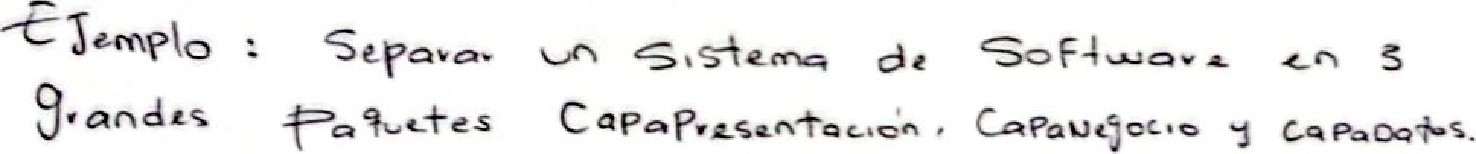 Ejemplo: Separar un Sistema de Software en 3
grandes Paquetes CapaPresentación, CapaNegocio y capaDatos.